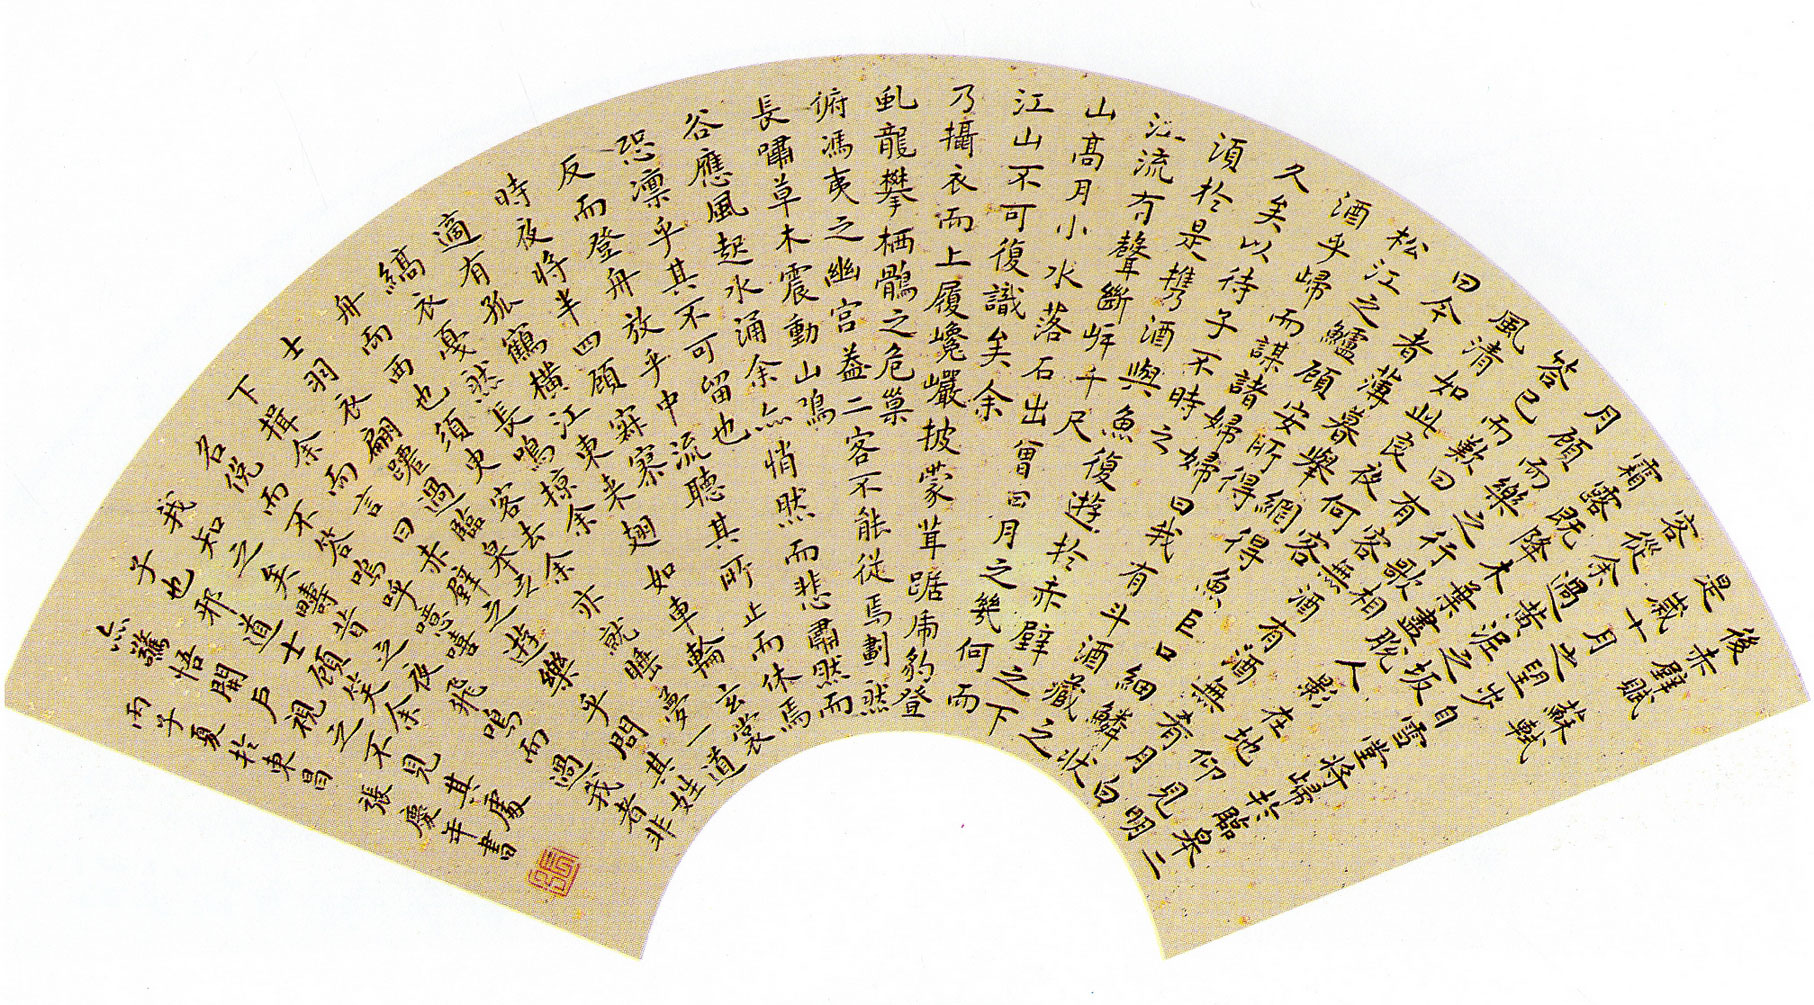 後赤壁賦 蘇軾
是歲十月之望步自雪堂將歸於臨皋二
客從余過黃泥之坂
霜露既降木葉盡脫人影在地仰見明
月顧而樂之行歌相
答已而歎曰有客無酒有酒無肴月白
風清如此良夜何客
曰今者薄暮舉網得魚巨口細鱗狀
松江之鱸顧安所得
酒乎歸而謀諸婦婦曰我有斗酒藏之
久矣以待子不時之
須於是攜酒與魚復遊於赤壁之下
江流有聲斷岸千尺
山高月小水落石出曾日月之幾何而
江山不可復識矣余
乃攝衣而上履巉巖披蒙茸踞虎豹登
虬龍攀栖鶻之危巢
俯馮夷之幽宮蓋二客不能從焉劃然
長嘯草木震動山鳴
谷應風起水涌余亦悄然而悲肅然而
恐凜乎其不可留也
反而登舟放乎中流聽其所止而休焉
時夜將半四顧寂寥
適有孤鶴橫江東來翅如車輪玄裳
縞衣戛然長鳴掠余
舟而西也須臾客去余亦就睡夢一道
士羽衣翩躚過臨皋之
下揖余而言曰赤壁之遊樂乎問其姓
名俛而不答嗚呼噫嘻
我知之矣疇昔之夜飛鳴而過我者非
子也邪道士顧笑余
亦驚悟開戶視之不見其處
丙子夏於東昌張慶年書